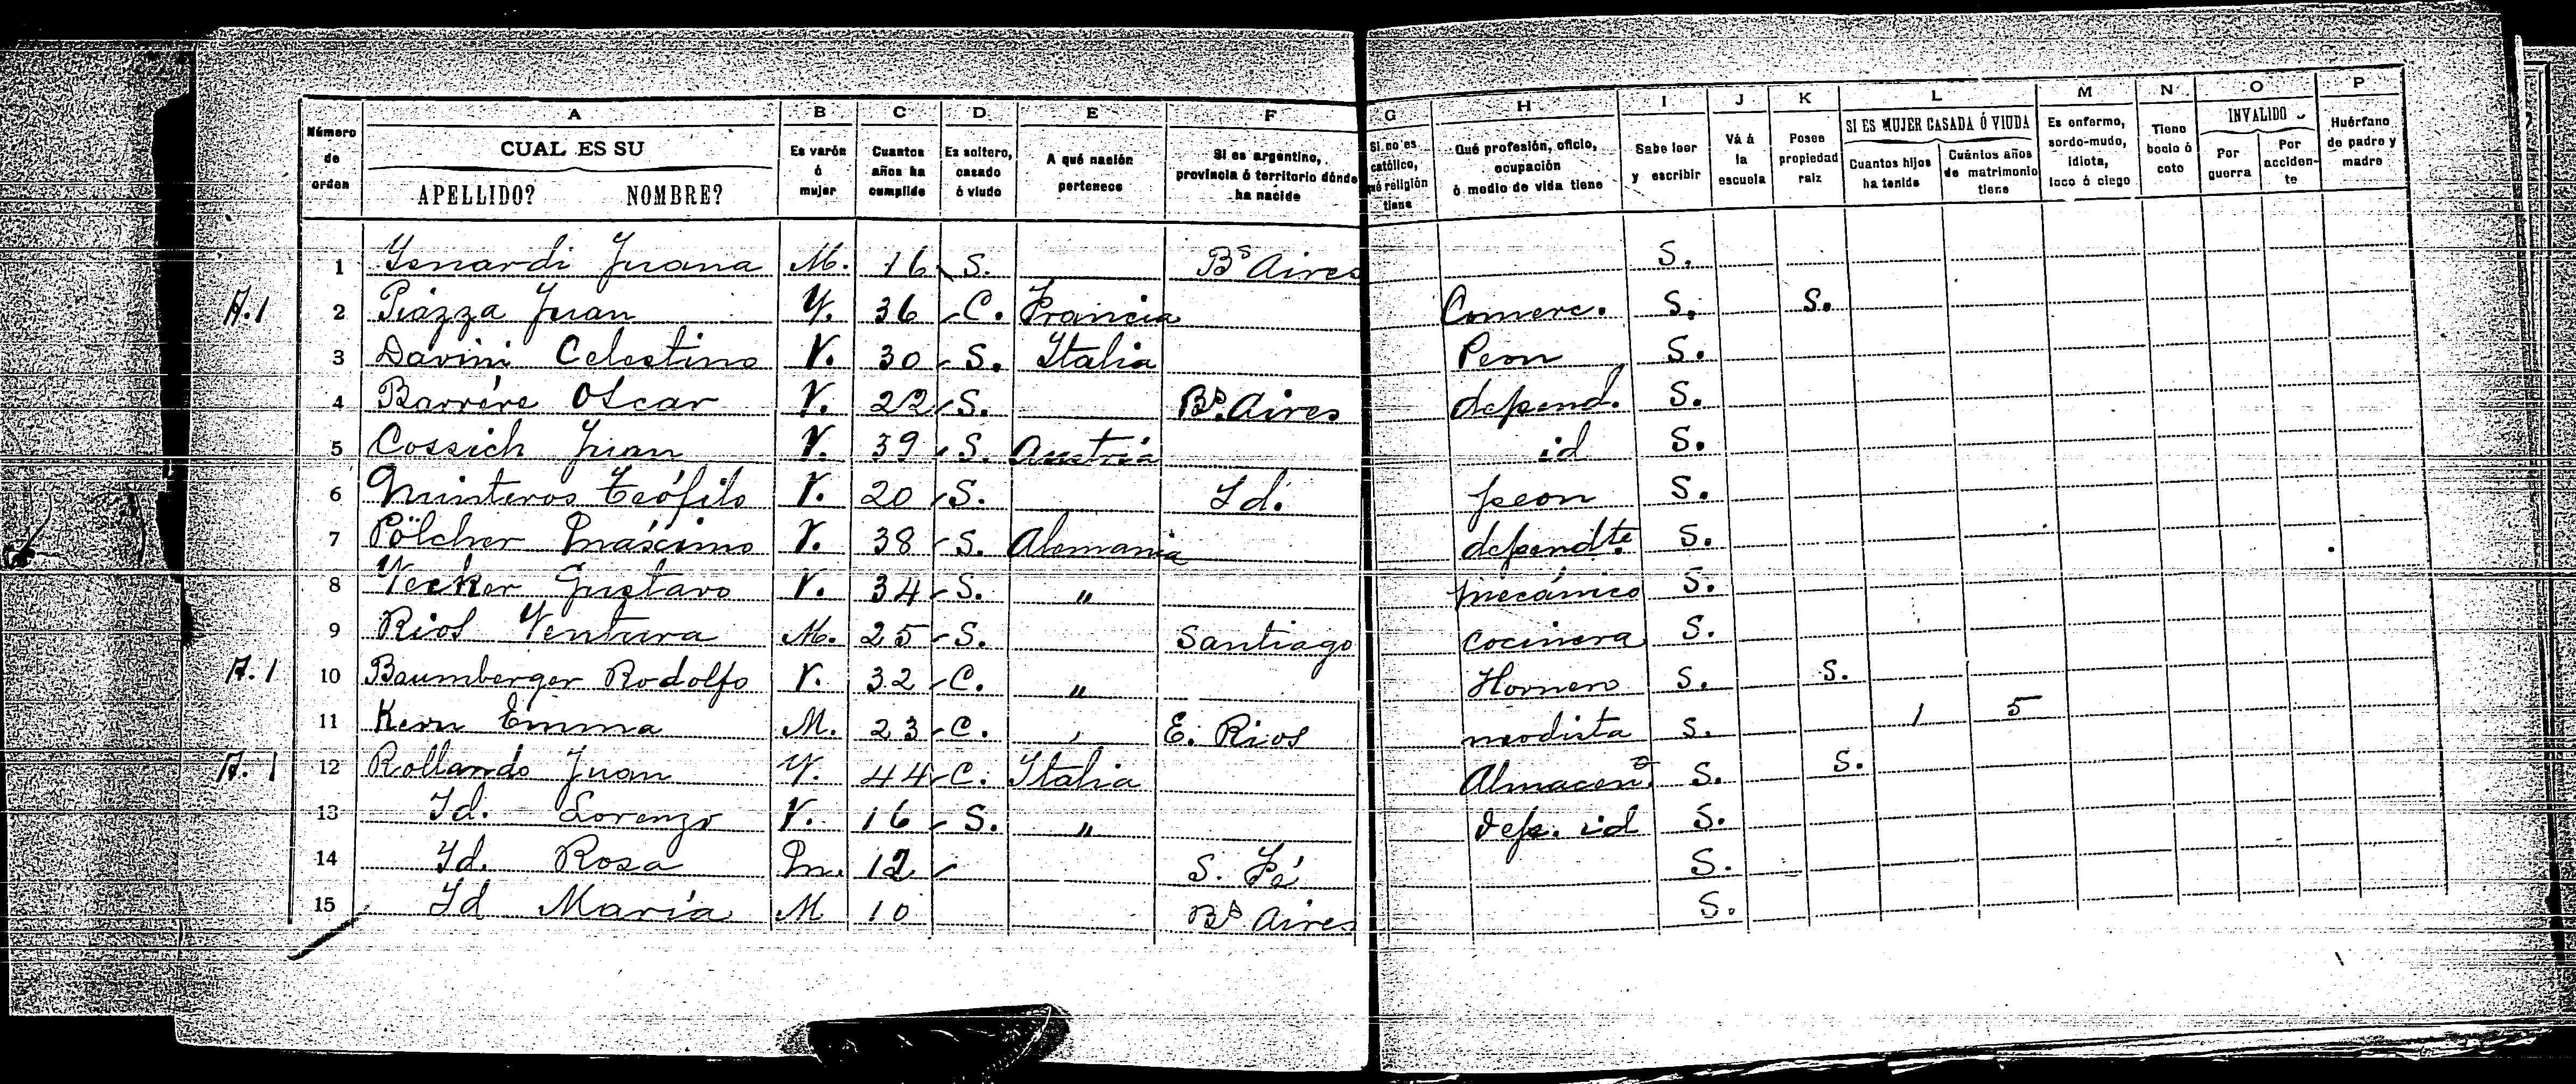 A B C D E F G H I J K L M N O P
Número de orden
CUAL ES SU APELLIDO? NOMBRE?
Es varón ó mujer
Cuantos años ha cumplido
Es soltero, casado ó viudo
A qué nación pertenece
Si es argentino, provincia ó territorio dónde ha nacido
Si no es católico, qué religión tiene
Qué profesión, oficio, ocupación ó medio de vida tiene
Sabe leer y escribir
Vá á la escuela
Posee propiedad raiz
SI ES MUJER CASADA Ó VIUDA
Cuantos hijos ha tenido
Cuántos años de matrimonio tiene
Es enfermo, sordo-mudo, idiota, loco ó ciego
Tiene bocio ó coto
INVALIDO
Por guerra
Por acciden-te
Huérfano de padre y madre
1 Juana M. 16 S. Bs Aires S.
A.1 2 Piazza Juan V. 36 C. Francia Comerc. S. S.
3 Davini Celestino V. 30 S. Italia Peon S.
4 Barrére Oscar V. 22 S. Bs. Aires depend. S.
5 Cossich Juan V. 39 S. Austria id S.
6 Teófilo V. 20 S. Id. peon S.
7 Pölcher Máximo V. 38 S. Alemania dependte. S.
8 Gustavo V. 34 S. " mecánico S.
9 Rios Ventura M. 25 S. Santiago cocinera S.
A.1 10 Baumberger Rodolfo V. 32 C. " Hornero S. S.
11 Kern Emma M. 23 C. E. Rios modista S. 1 5
A.1 12 Rollando Juan V. 44 C. Italia Almaceno. S. S.
13 Id. Lorenzo V. 16 S. " dep. id S.
14 Id. Rosa M. 12 S. Fé S.
15 Id María M 10 Bs Aires S.